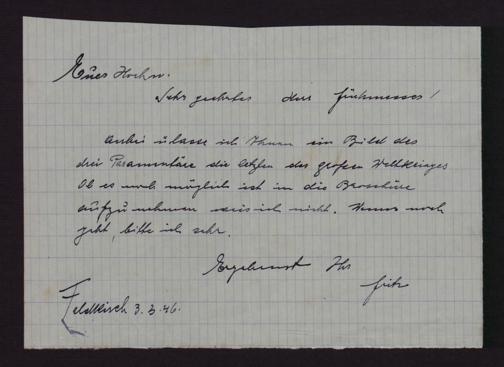 Euer Hochw.
Sehr geehrter Herr Frühmesser!
Anbei ich Ihnen ein Bild des
drei Paramentäre die letzten des großen Weltkrieges
Ob es noch möglich ist in die Broschüre
aufzunehmen weis ich nicht. Wenns noch
geht, bitte ich sehr.
Ergebenst Ihr
Fritz
Feldkirch 3.3.46.